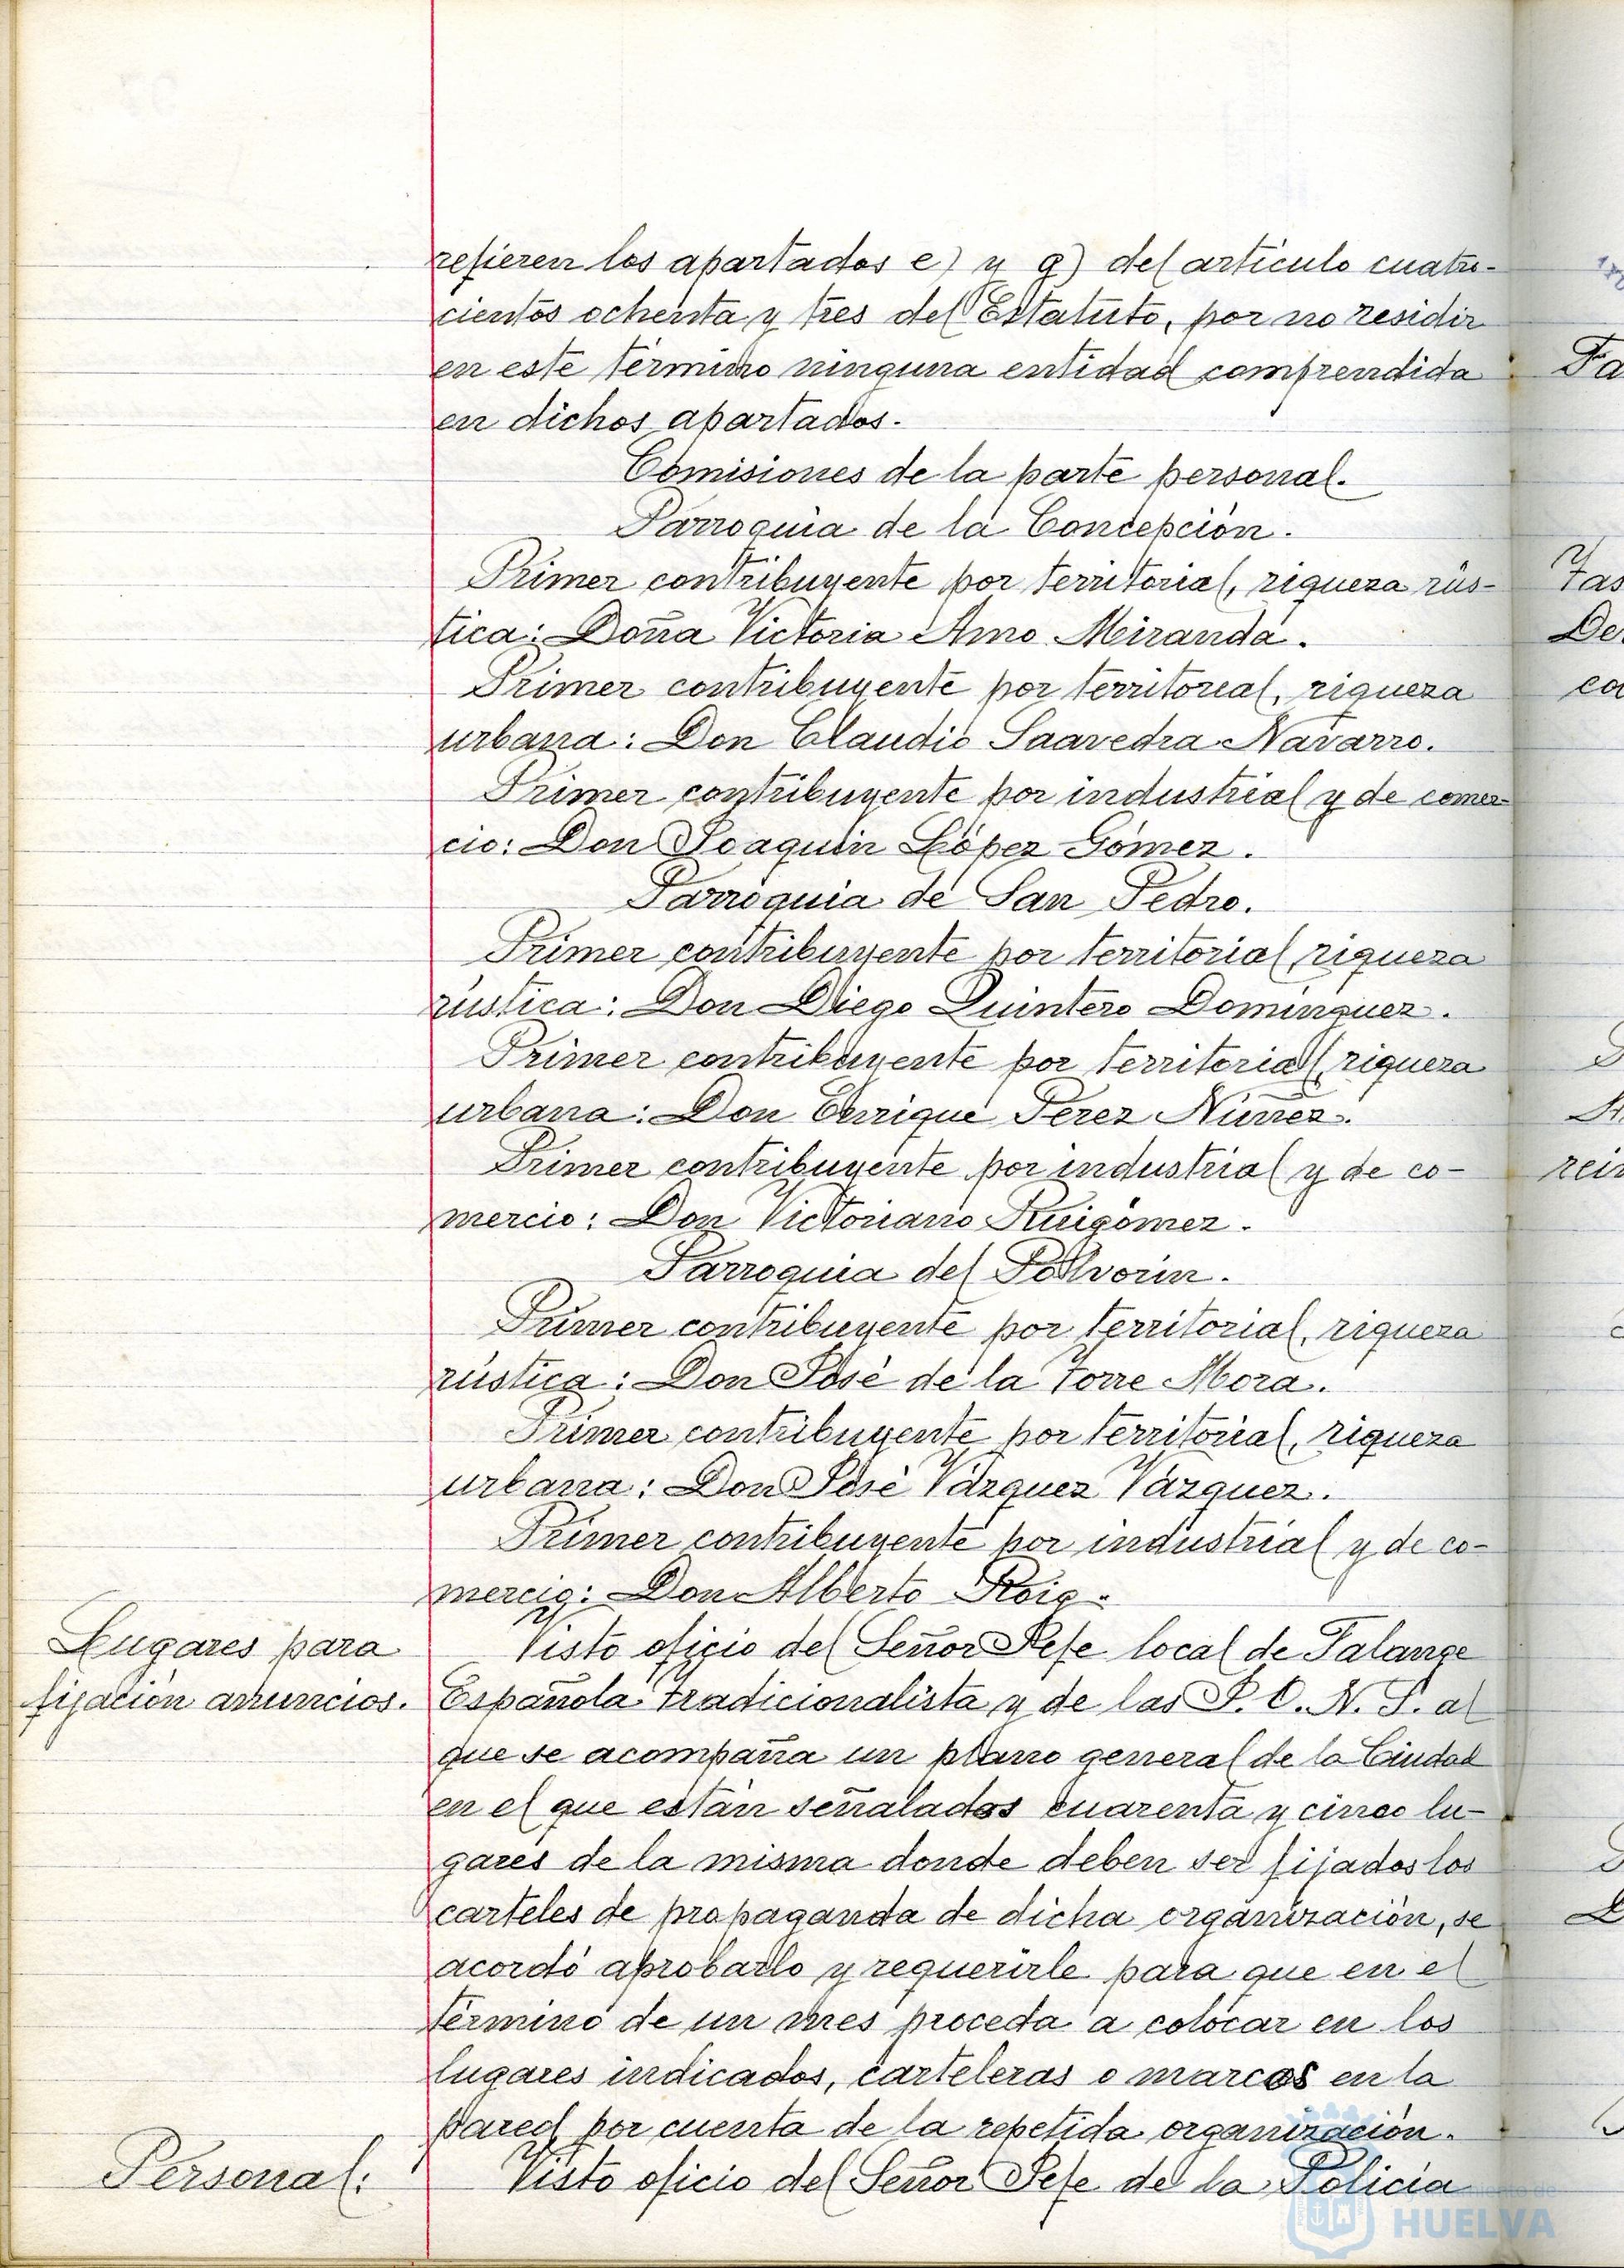 refieren los apartados e) y g) del artículo cuatro-
cientos ochenta y tres del Estatuto, por no residir
en este término ninguna entidad comprendida
en dichos apartados.
Comisiones de la parte personal.
Parroquia de la Concepción.
Primer contribuyente por territorial, riqueza rús-
tica: Doña Victoria Amo Miranda.
Primer contribuyente por territorial, riqueza
urbana: Don Claudio Saavedra Navarro.
Primer contribuyente por industrial y de comer-
cio: Don Joaquín López Gómez.
Parroquia de San Pedro.
Primer contribuyente por territorial, riqueza
rústica: Don Diego Quintero Domínguez.
Primer contribuyente por territorial, riqueza
urbana: Don Enrique Pérez Núñez.
Primer contribuyente por industrial y de co-
mercio: Don Victoriano Ruigómez.
Parroquia del Polvorín.
Primer contribuyente por territorial, riqueza
rústica: Don José de la Torre Mora.
Primer contribuyente por territorial, riqueza
urbana: Don José Vázquez Vázquez.
Primer contribuyente por industrial y de co-
mercio: Don Alberto Roig.
Lugares para
fijación anuncios.
Visto oficio del Señor Jefe local de Falange
Española Tradicionalista y de las J. O. N. S. al
que se acompaña un plano general de la Ciudad
en el que están señalados cuarenta y cinco lu-
gares de la misma donde deben ser fijados los
carteles de propaganda de dicha organización, se
acordó aprobarlo y requerirle para que en el
término de un mes proceda a colocar en los
lugares indicados, carteleras o marcos en la
pared por cuenta de la repetida organización.
Personal:
Visto oficio del Señor Jefe de la Policía
HUELVA